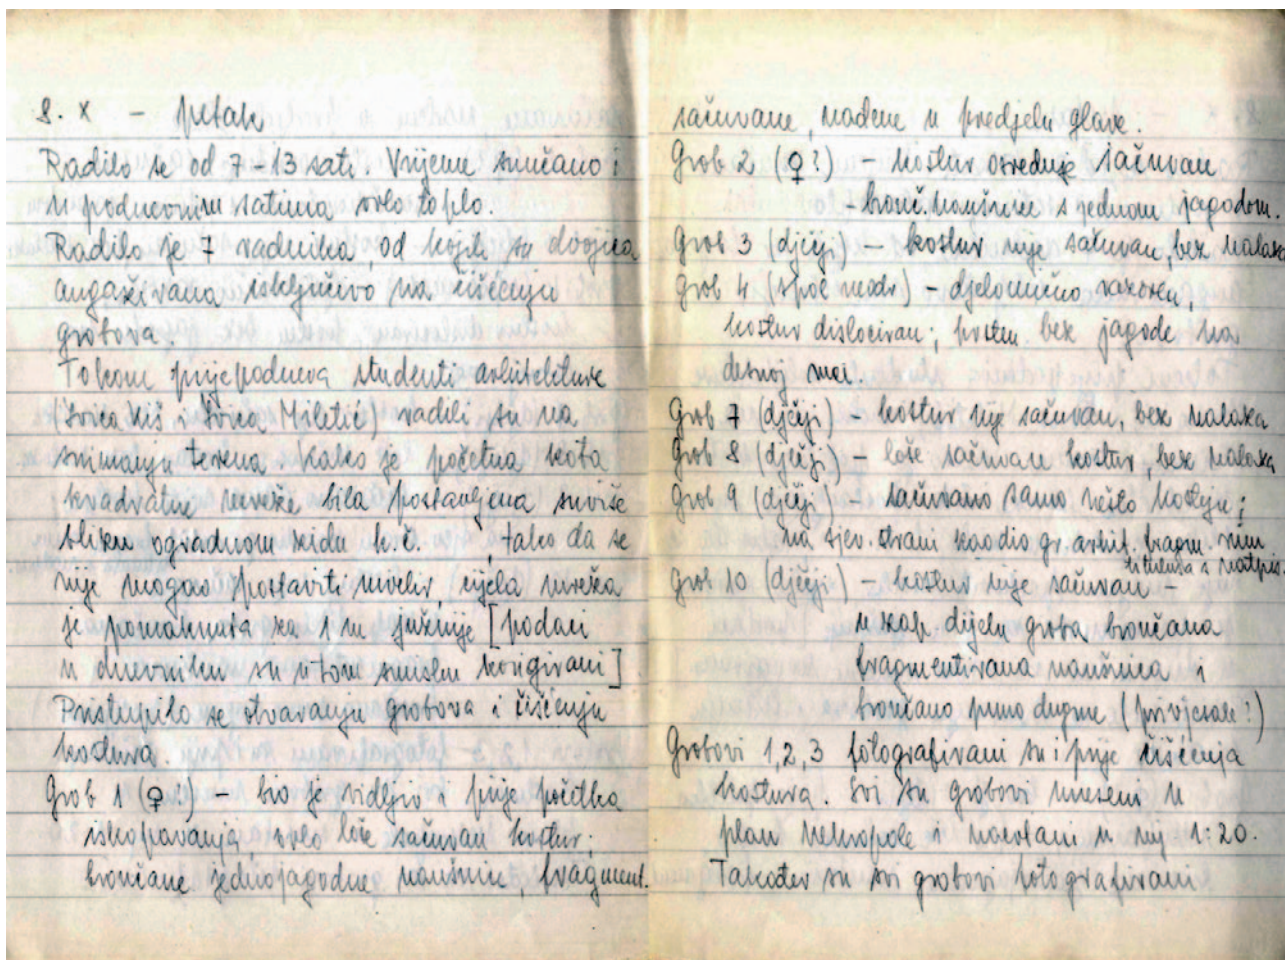 8. X - petak
Radilo se od 7-13 sati. Vrijeme sunčano i
u podnevnim satima vrlo toplo.
Radilo je 7 radnika, od kojih su dvojica
angažirana isključivo na čišćenju
grobova.
Tokom prijepodneva studenti arhitekture
(Ivica Kiš i Ivica Miletić) radili su na
snimanju terena. Kako je početna kota
kvadratne mreže bila postavljena suviše
blizu ogradnom zidu k.č. , tako da se
nije mogao postaviti nivelir, cijela mreža
je pomaknuta za 1 m južnije [podaci
u dnevniku su u tom smislu korigirani]
Pristupilo se otvaranju grobova i čišćenju
kostura.
Grob 1 (♀?) - bio je vidljiv i prije početka
iskopavanja, vrlo loše sačuvan kostur;
brončane jednojagodne naušnice, fragment.
sačuvane, nađene u predjelu glave.
Grob 2 (♀?) - kostur osrednje sačuvan
bronč. naušnice s jednom jagodom.
Grob 3 (dječji) - kostur nije sačuvan, bez nalaza
Grob 4 (spol neodr) - djelomično razoren,
kostur dislociran; prsten bez jagode, na
desnoj ruci.
Grob 7 (dječji) - kostur nije sačuvan, bez nalaza
Grob 8 (dječji) - loše sačuvan kostur, bez nalaza
Grob 9 (dječji) - sačuvano samo nešto kostiju;
na sjev. strani kao dio gr. arhit. fragm. rim
titulusa s natpis.
Grob 10 (dječji) - kostur nije sačuvan -
u zap. dijelu groba brončana
fragmentirana naušnica i
brončano puno dugme (privjesak?)
Grobovi 1,2,3 fotografirani su i prije čišćenja
kostura. Svi su grobovi uneseni u
plan nekropole i nacrtani u mj 1:20.
Također su svi grobovi fotografirani